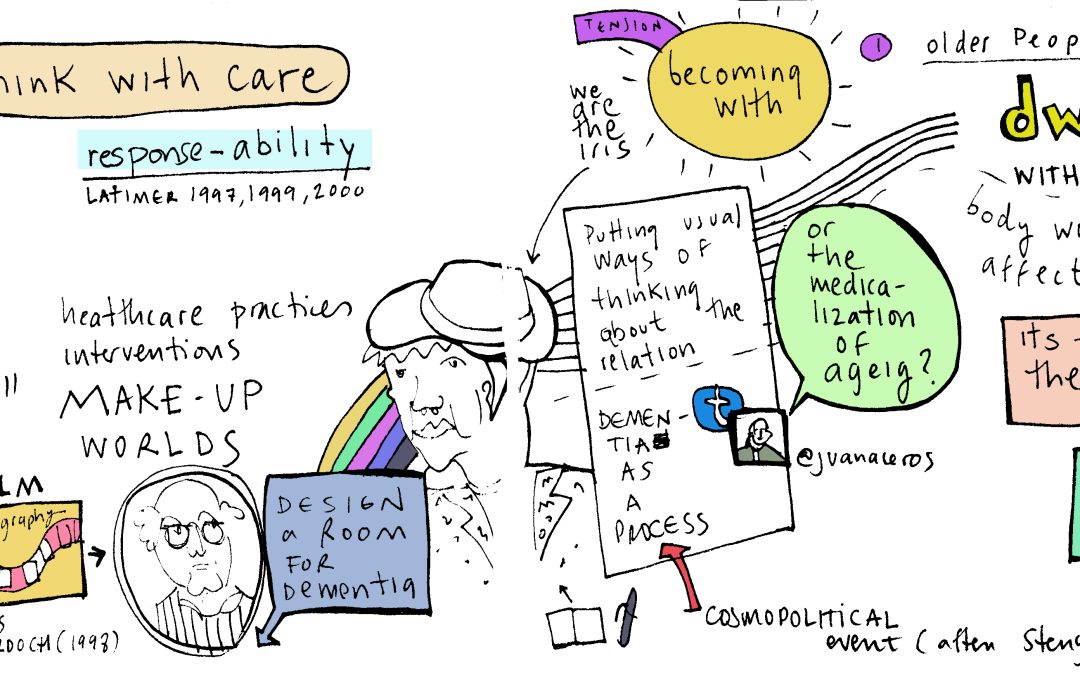 hink with care
response-ability
LATIMER 1997, 1999, 2000
healthcare practices
interventions
MAKE-UP
WORLDS
"
LM
ography
DOCH (1998)
DESIGN
a ROOM
FOR
Dementia
TENSION
becoming
with
we
are
the
iris
Putting usual
ways of
thinking
about the
relation
DEMEN-
TIA
AS
A
PROCESS
t
@jvanaceros
or
the
medica-
lization
of
ageig?
COSMOPOLITICAL
event (after Steng
1
older Peop
dw
WITH
body w
affect
its
the